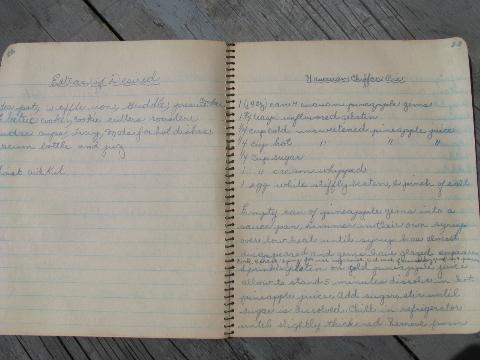 Extras if Desired
Tea pot, waffle iron, Griddle, press. Cooker
Electric cooker, cookie cutters, roasters
custard cups, Tray, Mats for hot dishes
vacuum bottle and jug
First aid Kit
Hawaiian Chiffon Pie
1 (9oz) can Hawaiian pineapple gems
unflavored gelatin
1/4 cup cold unsweetened pineapple juice
1/4 cup hot " " "
1/4 cup sugar
1 " cream whipped
1 egg white stiffly beaten, & pinch of salt
Empty can of pineapple gems into a
sauce pan, simmer in their own syrup
over low heat until syrup has almost
disappeared and gems have glazed appearance
Sprinkle gelatin on cold pineapple juice
allow to stand 5 minutes dissolve in hot
pineapple juice. Add sugar, stir until
sugar is dissolved. Chill in refrigerator
until slightly thickened. Remove from